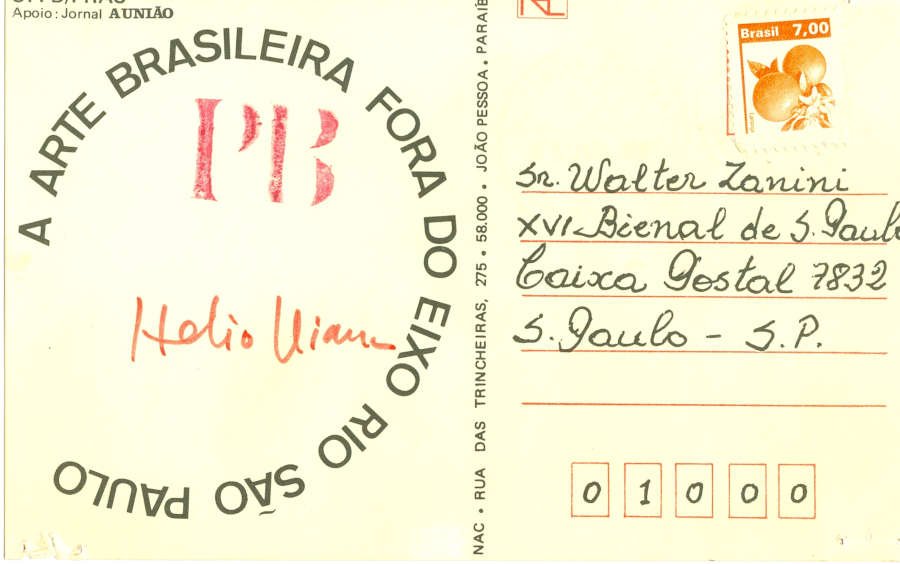 Apoio: Jornal A UNIÃO
A ARTE BRASILEIRA FORA DO EIXO RIO SÃO PAULO
PB
Helio Viana
NAC • RUA DAS TRINCHEIRAS, 275 • 58.000 • JOÃO PESSOA • PARAÍB
Brasil 7,00
Sr. Walter Zanini
XVI-Bienal de S. Paulo
Caixa Postal 7832
S. Paulo - S.P.
0 1 0 0 0